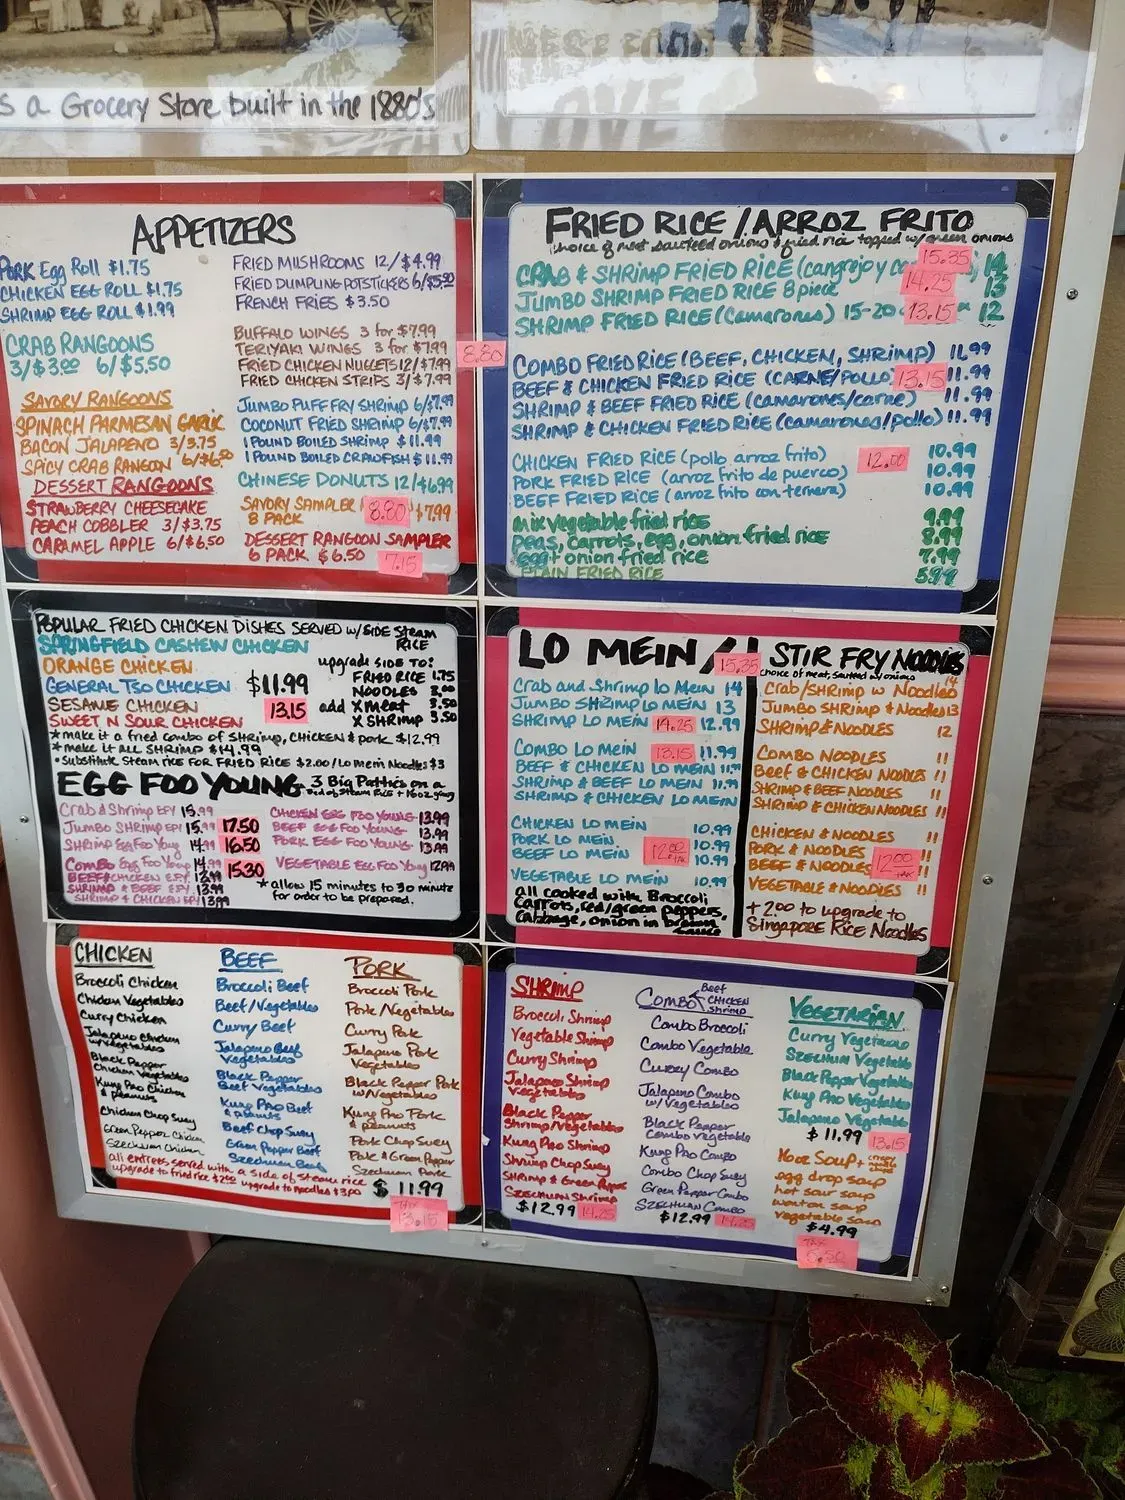 s a Grocery Store built in the 1880's
APPETIZERS
Pork Egg Roll $1.75
CHICKEN EGG ROLL $1.75
SHRIMP EGG ROLL $1.99
CRAB RANGOONS
3/$3.00 6/$5.50
SAVORY RANGOONS
SPINACH PARMESAN GARLIC
BACON JALAPENO 3/3.75
SPICY CRAB RANGOON 6/$6.50
DESSERT RANGOONS
STRAWBERRY CHEESECAKE
PEACH COBBLER 3/$3.75
CARAMEL APPLE 6/$6.50
FRIED MUSHROOMS 12/$4.99
FRIED DUMPLING POTSTICKERS 6/$5.50
FRENCH FRIES $3.50
BUFFALO WINGS 3 for $7.99
TERIYAKI WINGS 3 for $7.99 8.80
FRIED CHICKEN NUGGETS 12/$7.99
FRIED CHICKEN STRIPS 3/$7.99
JUMBO PUFF FRY SHRIMP 6/$7.99
COCONUT FRIED SHRIMP 6/$7.99
1 POUND BOILED SHRIMP $11.99
1 POUND BOILED CRAWFISH $11.99
CHINESE DONUTS 12/$6.99
SAVORY SAMPLER 8.80 $7.99
8 PACK
DESSERT RANGOON SAMPLER
6 PACK $6.50 7.15
FRIED RICE / ARROZ FRITO
choice of meat sauteed onions & fried rice topped w/green onions
15.35
CRAB & SHRIMP FRIED RICE (cangrejo y ca 14
14.25
JUMBO SHRIMP FRIED RICE 8 piece 13
SHRIMP FRIED RICE (Camarones) 15-20 13.15 12
COMBO FRIED RICE (BEEF, CHICKEN, SHRIMP) 11.99
BEEF & CHICKEN FRIED RICE (CARNE/POLLO) 13.15 11.99
SHRIMP & BEEF FRIED RICE (camarones/carne) 11.99
SHRIMP & CHICKEN FRIED RICE (camarones/pollo) 11.99
CHICKEN FRIED RICE (pollo arroz frito) 12.00 10.99
PORK FRIED RICE (arroz frito de puerco) 10.99
BEEF FRIED RICE (arroz frito con ternera) 10.99
mix vegetable fried rice 9.99
peas, carrots, egg, onion fried rice 8.99
egg + onion fried rice 7.99
PLAIN FRIED RICE 5.99
POPULAR FRIED CHICKEN DISHES SERVED W/SIDE STEAM RICE
SPRINGFIELD CASHEW CHICKEN
ORANGE CHICKEN
GENERAL TSO CHICKEN $11.99
SESAME CHICKEN 13.15
SWEET N SOUR CHICKEN
upgrade SIDE TO:
FRIED RICE 1.75
NOODLES 3.00
add x meat 3.50
x SHRIMP 3.50
*make it a fried combo of Shrimp, CHICKEN & pork $12.99
*make it ALL SHRIMP $14.99
•Substitute Steam rice FOR FRIED RICE $2.00/Lo Mein Noodles $3
EGG FOO YOUNG 3 Big Patties on a
Crab & Shrimp EFY 15.99
Jumbo SHRIMP EFY 15.99 17.50
SHRIMP Egg Foo Young 14.99 16.50
Combo Egg Foo Young 14.99 15.30
BEEF & CHICKEN EFY 13.99
SHRIMP & BEEF EFY 13.99
SHRIMP & CHICKEN EFY 13.99
CHICKEN EGG FOO YOUNG 13.99
BEEF EGG FOO YOUNG 13.99
PORK EGG FOO YOUNG 13.99
VEGETABLE EGG FOO YOUNG 12.99
*allow 15 minutes to 30 minute
for order to be prepared.
LO MEIN / 15.35
Crab and Shrimp Lo Mein 14
JUMBO SHRIMP LO MEIN 13
SHRIMP LO MEIN 14.25 12.99
COMBO LO MEIN 13.15 11.99
BEEF & CHICKEN LO MEIN 11.99
SHRIMP & BEEF LO MEIN 11.99
SHRIMP & CHICKEN LO MEIN
CHICKEN LO MEIN 10.99
PORK LO MEIN 10.99
BEEF LO MEIN 12.00 TAX 10.99
VEGETABLE LO MEIN 10.99
all cooked with Broccoli
Carrots, red/green peppers,
Cabbage, onion in brown
sauce
STIR FRY NOODLES
choice of meat, sauteed w/onions
Crab/SHRIMP w Noodles 14
JUMBO SHRIMP & Noodles 13
SHRIMP & NOODLES 12
COMBO NOODLES 11
Beef & CHICKEN NOODLES 11
SHRIMP & BEEF NOODLES 11
SHRIMP & CHICKEN NOODLES 11
CHICKEN & NOODLES 11
PORK & NOODLES 11
BEEF & NOODLES 12.00 TAX 11
VEGETABLE & NOODLES 11
+ 2.00 to upgrade to
Singapore Rice Noodles
CHICKEN
Broccoli Chicken
Chicken Vegetables
Curry Chicken
Jalapeno Chicken
w/vegetables
Black Pepper
Chicken Vegetables
Kung Pao Chicken
& peanuts
Chicken Chop Suey
Green Pepper Chicken
Szechuan Chicken
BEEF
Broccoli Beef
Beef/Vegetables
Curry Beef
Jalapeno Beef
Vegetables
Black Pepper
Beef Vegetables
Kung Pao Beef
& peanuts
Beef Chop Suey
Green Pepper Beef
Szechuan Beef
PORK
Broccoli Pork
Pork/Vegetables
Curry Pork
Jalapeno Pork
Vegetables
Black Pepper Pork
w/Vegetables
Kung Pao Pork
& peanuts
Pork Chop Suey
Pork & Green Pepper
Szechuan Pork
all entrees served with a side of steam rice
upgrade to fried rice $2.00 upgrade to noodles $3.00
$11.99
TAX
13.15
SHRIMP
Broccoli Shrimp
Vegetable Shrimp
Curry Shrimp
Jalapeno Shrimp
Vegetables
Black Pepper
Shrimp/Vegetables
Kung Pao Shrimp
Shrimp Chop Suey
SHRIMP & Green Peppers
SZECHUAN Shrimp
$12.99 14.25
COMBO Beef CHICKEN Shrimp
Combo Broccoli
Combo Vegetable
Curry Combo
Jalapeno Combo
w/Vegetables
Black Pepper
Combo Vegetable
Kung Pao Combo
Combo Chop Suey
Green Pepper Combo
SZECHUAN Combo
$12.99 14.25
VEGETARIAN
Curry Vegetable
SZECHUAN Vegetable
Black Pepper Vegetable
Kung Pao Vegetable
Jalapeno Vegetable
$11.99 13.15
16oz SOUP +
egg drop soup
hot sour soup
wonton soup
vegetable soup
$4.99
TAX
5.50